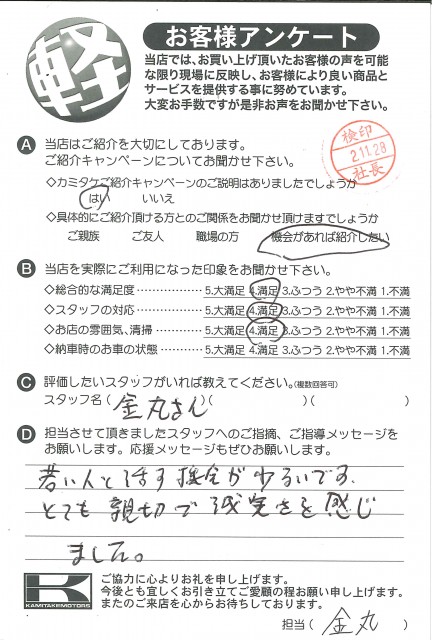 軽
お客様アンケート
当店では、お買い上げ頂いたお客様の声を可能
な限り現場に反映し、お客様により良い商品と
サービスを提供する事に努めています。
大変お手数ですが是非お声をお聞かせ下さい。
検印
2.11.28
社長
A 当店はご紹介を大切にしております。
ご紹介キャンペーンについてお聞かせ下さい。
◇カミタケご紹介キャンペーンのご説明はありましたでしょうか
はい いいえ
◇具体的にご紹介頂ける方とのご関係をお聞かせ頂けますでしょうか
ご親族 ご友人 職場の方 機会があれば紹介したい
B 当店を実際にご利用になった印象をお聞かせ下さい。
◇総合的な満足度 5.大満足 4.満足 3.ふつう 2.やや不満 1.不満
◇スタッフの対応 5.大満足 4.満足 3.ふつう 2.やや不満 1.不満
◇お店の雰囲気、清掃 5.大満足 4.満足 3.ふつう 2.やや不満 1.不満
◇納車時のお車の状態 5.大満足 4.満足 3.ふつう 2.やや不満 1.不満
C 評価したいスタッフがいれば教えてください。(複数回答可)
スタッフ名(金丸さん)( )( )
D 担当させて頂きましたスタッフへのご指摘、ご指導メッセージを
お願いします。応援メッセージもぜひお願いします。
若い人と話す機会が です。
とても親切で誠実さを感じ
ました。
K
KAMITAKEMOTORS
ご協力に心よりお礼を申し上げます。
今後とも宜しくお引き立てご愛顧の程お願い申し上げます。
またのご来店を心からお待ちしております。
担当(金丸)